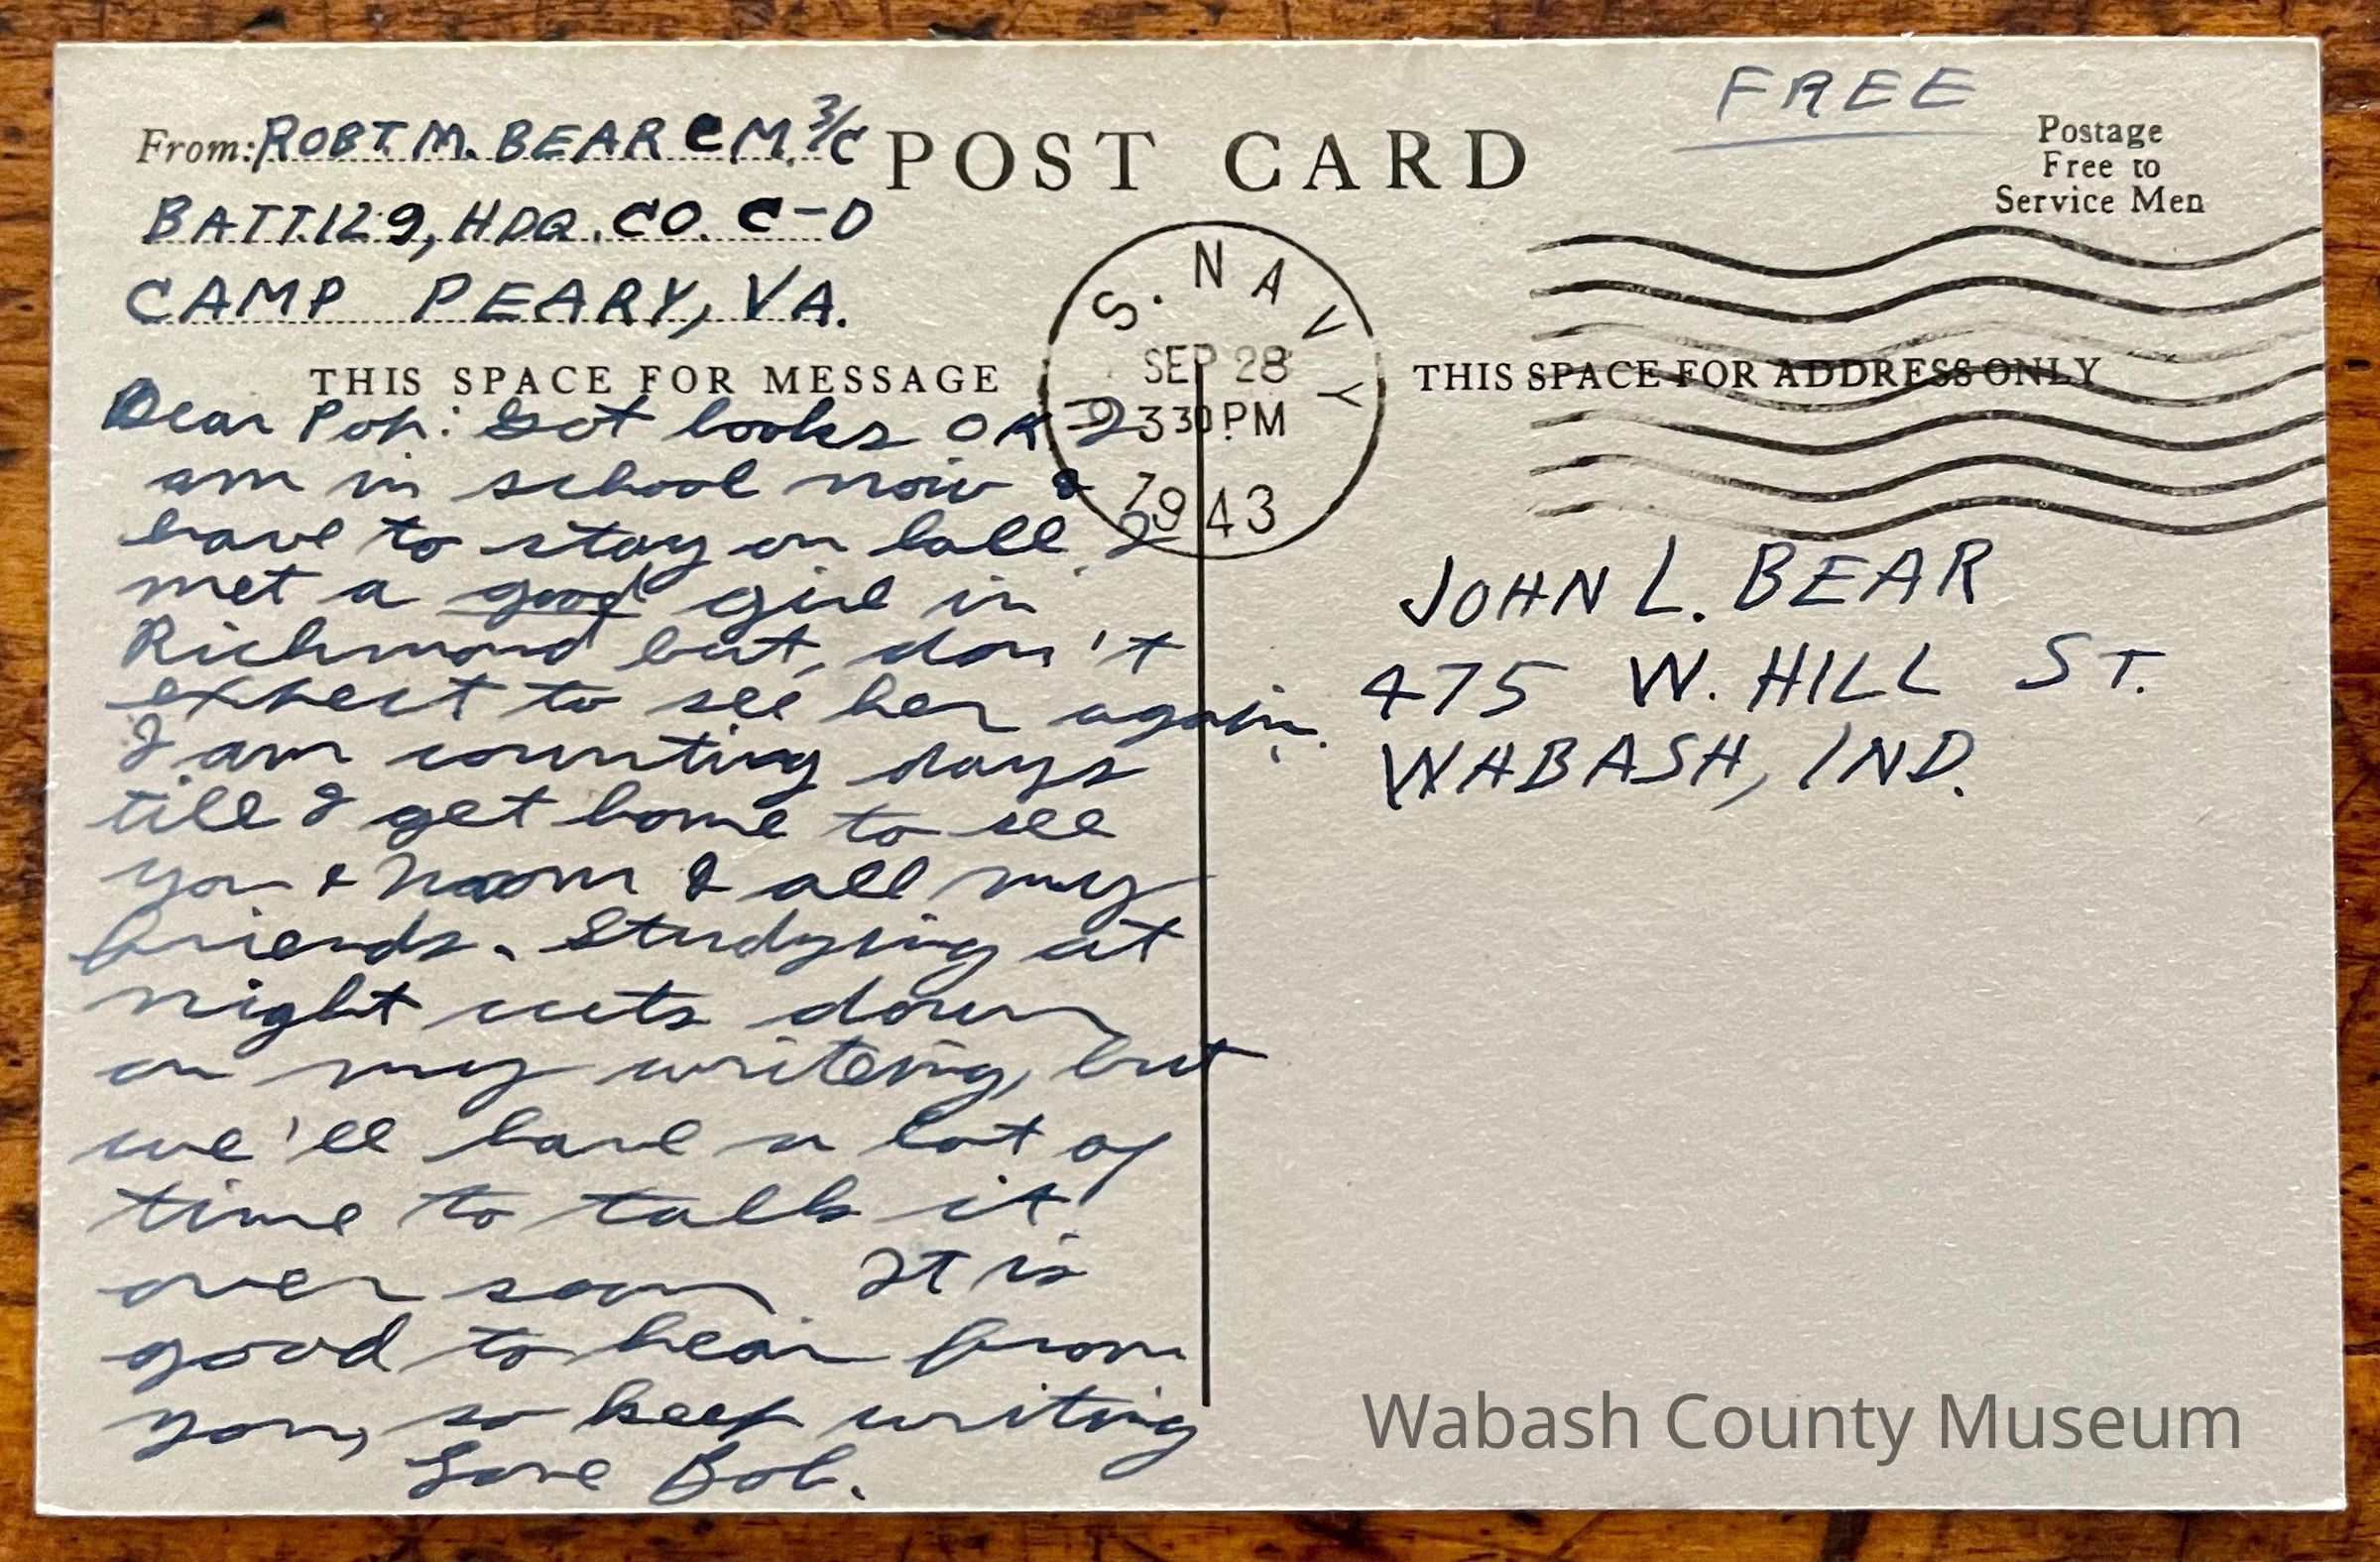 FREE
Postage
Free to
Service Men
From: ROBT. M. BEAR CM. 3/C
POST CARD
BATT. 129, HDQ. CO. C-D
CAMP PEARY, VA.
S. NAVY
SEP 28
330 PM
1943
THIS SPACE FOR MESSAGE
Dear Pop: Got books OK I
am in school now &
have to stay on ball. I
met a good girl in
Richmond but, don't
expect to see her again.
I am counting days
till I get home to see
you & Naom & all my
friends. Studying at
night cuts down
on my writeing, but
we'll have a lot of
time to talk it
over soon It is
good to hear from
you, so keep writing
Love Bob.
THIS SPACE FOR ADDRESS ONLY
JOHN L. BEAR
475 W. HILL ST.
WABASH, IND.
Wabash County Museum